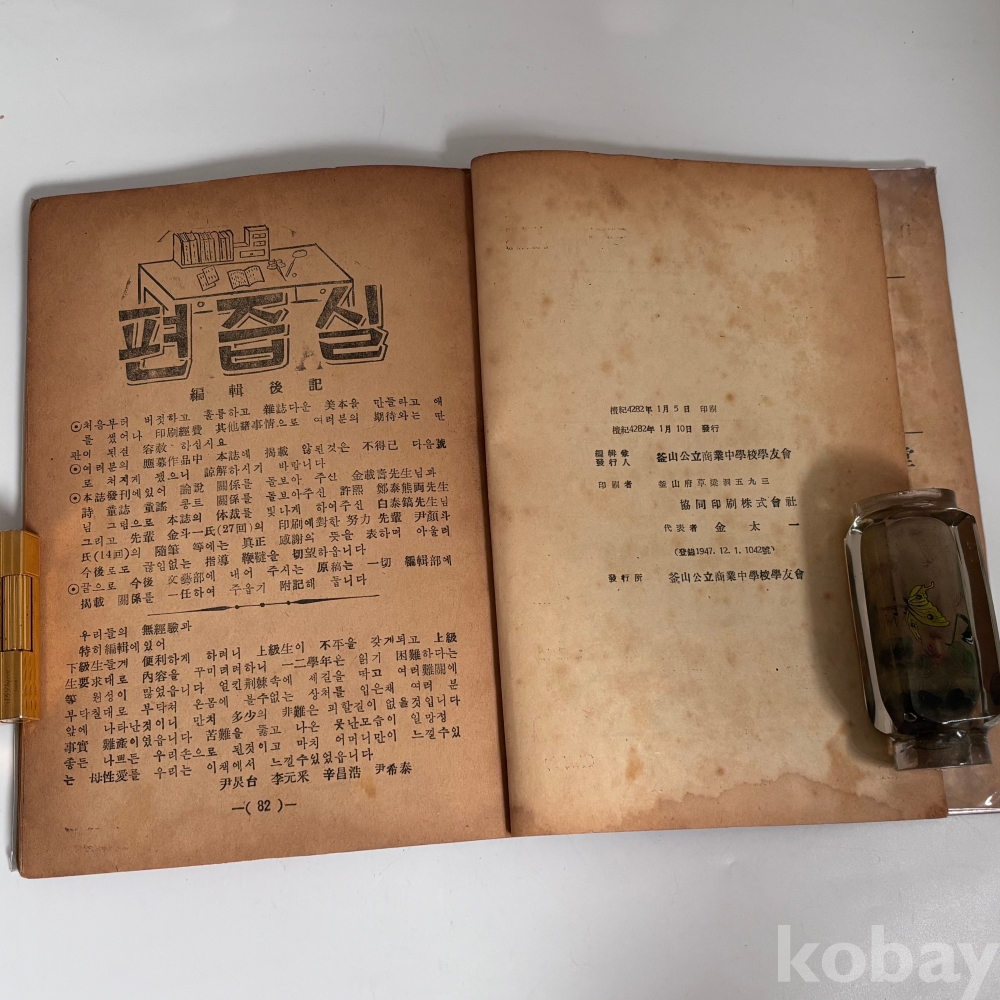 편즙실
編輯後記
⊙처음부터 버젓하고 훌륭하고 雜誌다운 美本을 만들라고 애
를 썼어나 印刷經費 其他諸事情으로 여러분의 期待와는 딴
판이 된걸 容赦 하십시요
⊙여러분의 應募作品中 本誌에 掲載 않된것은 不得己 다음號
로 처지게 됐으니 諒解하시기 바랍니다
⊙本誌發刊에있어 論說 關係를 돌보아 주신 金載壽先生님과
詩 童誌 童謠 콩트 關係를 돌보아주신 許熙 鄭泰熊両先生
님 그림으로 本誌의 体裁를 빛나게 하여주신 白泰鎬先生님
그리고 先輩 金斗一氏(27回)의 印刷에對한 努力 先輩 尹顔斗
氏(14回)의 隨筆 等에는 真正 感謝의 뜻을 表하며 아울러
今後로도 끊임없는 指導 鞭韃을 切望하옵니다
⊙끝으로 今後 文藝部에 내어 주시는 原稿는 一切 編輯部에
掲載 關係를 一任하여 주옵기 附記해 둡니다
우리들의 無經驗과
特히編輯에있어
下級生들게 便利하게 하려니 上級生이 不平을 갖게되고 上級
生要求대로 內容을 꾸미려하니 一二學年은 읽기 困難하다는
等 원성이 많었읍니다 얼킨荆棘속에 세길을 타고 여러難關에
부다칠대로 부닥처 온몸에 볼수없는 상처를 입은채 여러 분
앞에 나타난것이니 만치 多少의 非難은 피할길이 없을것입니다
事實 難產이였읍니다 苦難을 뚫고 나온 못난모습이 일망정
좋든 나쁘든 우리손으로 된것이고 마치 어머니만이 느낄수있
는 母性愛를 우리는 이책에서 느낄수있었읍니다
尹炅台 李元采 辛昌浩 尹希泰
—( 82 )—
檀紀4282年 1月 5日 印刷
檀紀4282年 1月 10日 發行
編輯兼
發行人 釜山公立商業中學校學友會
印刷者 釜山府草梁洞五九三
協同印刷株式會社
代表者 金太一
(登錄1947. 12. 1. 1042號)
發行所 釜山公立商業中學校學友會
kobay